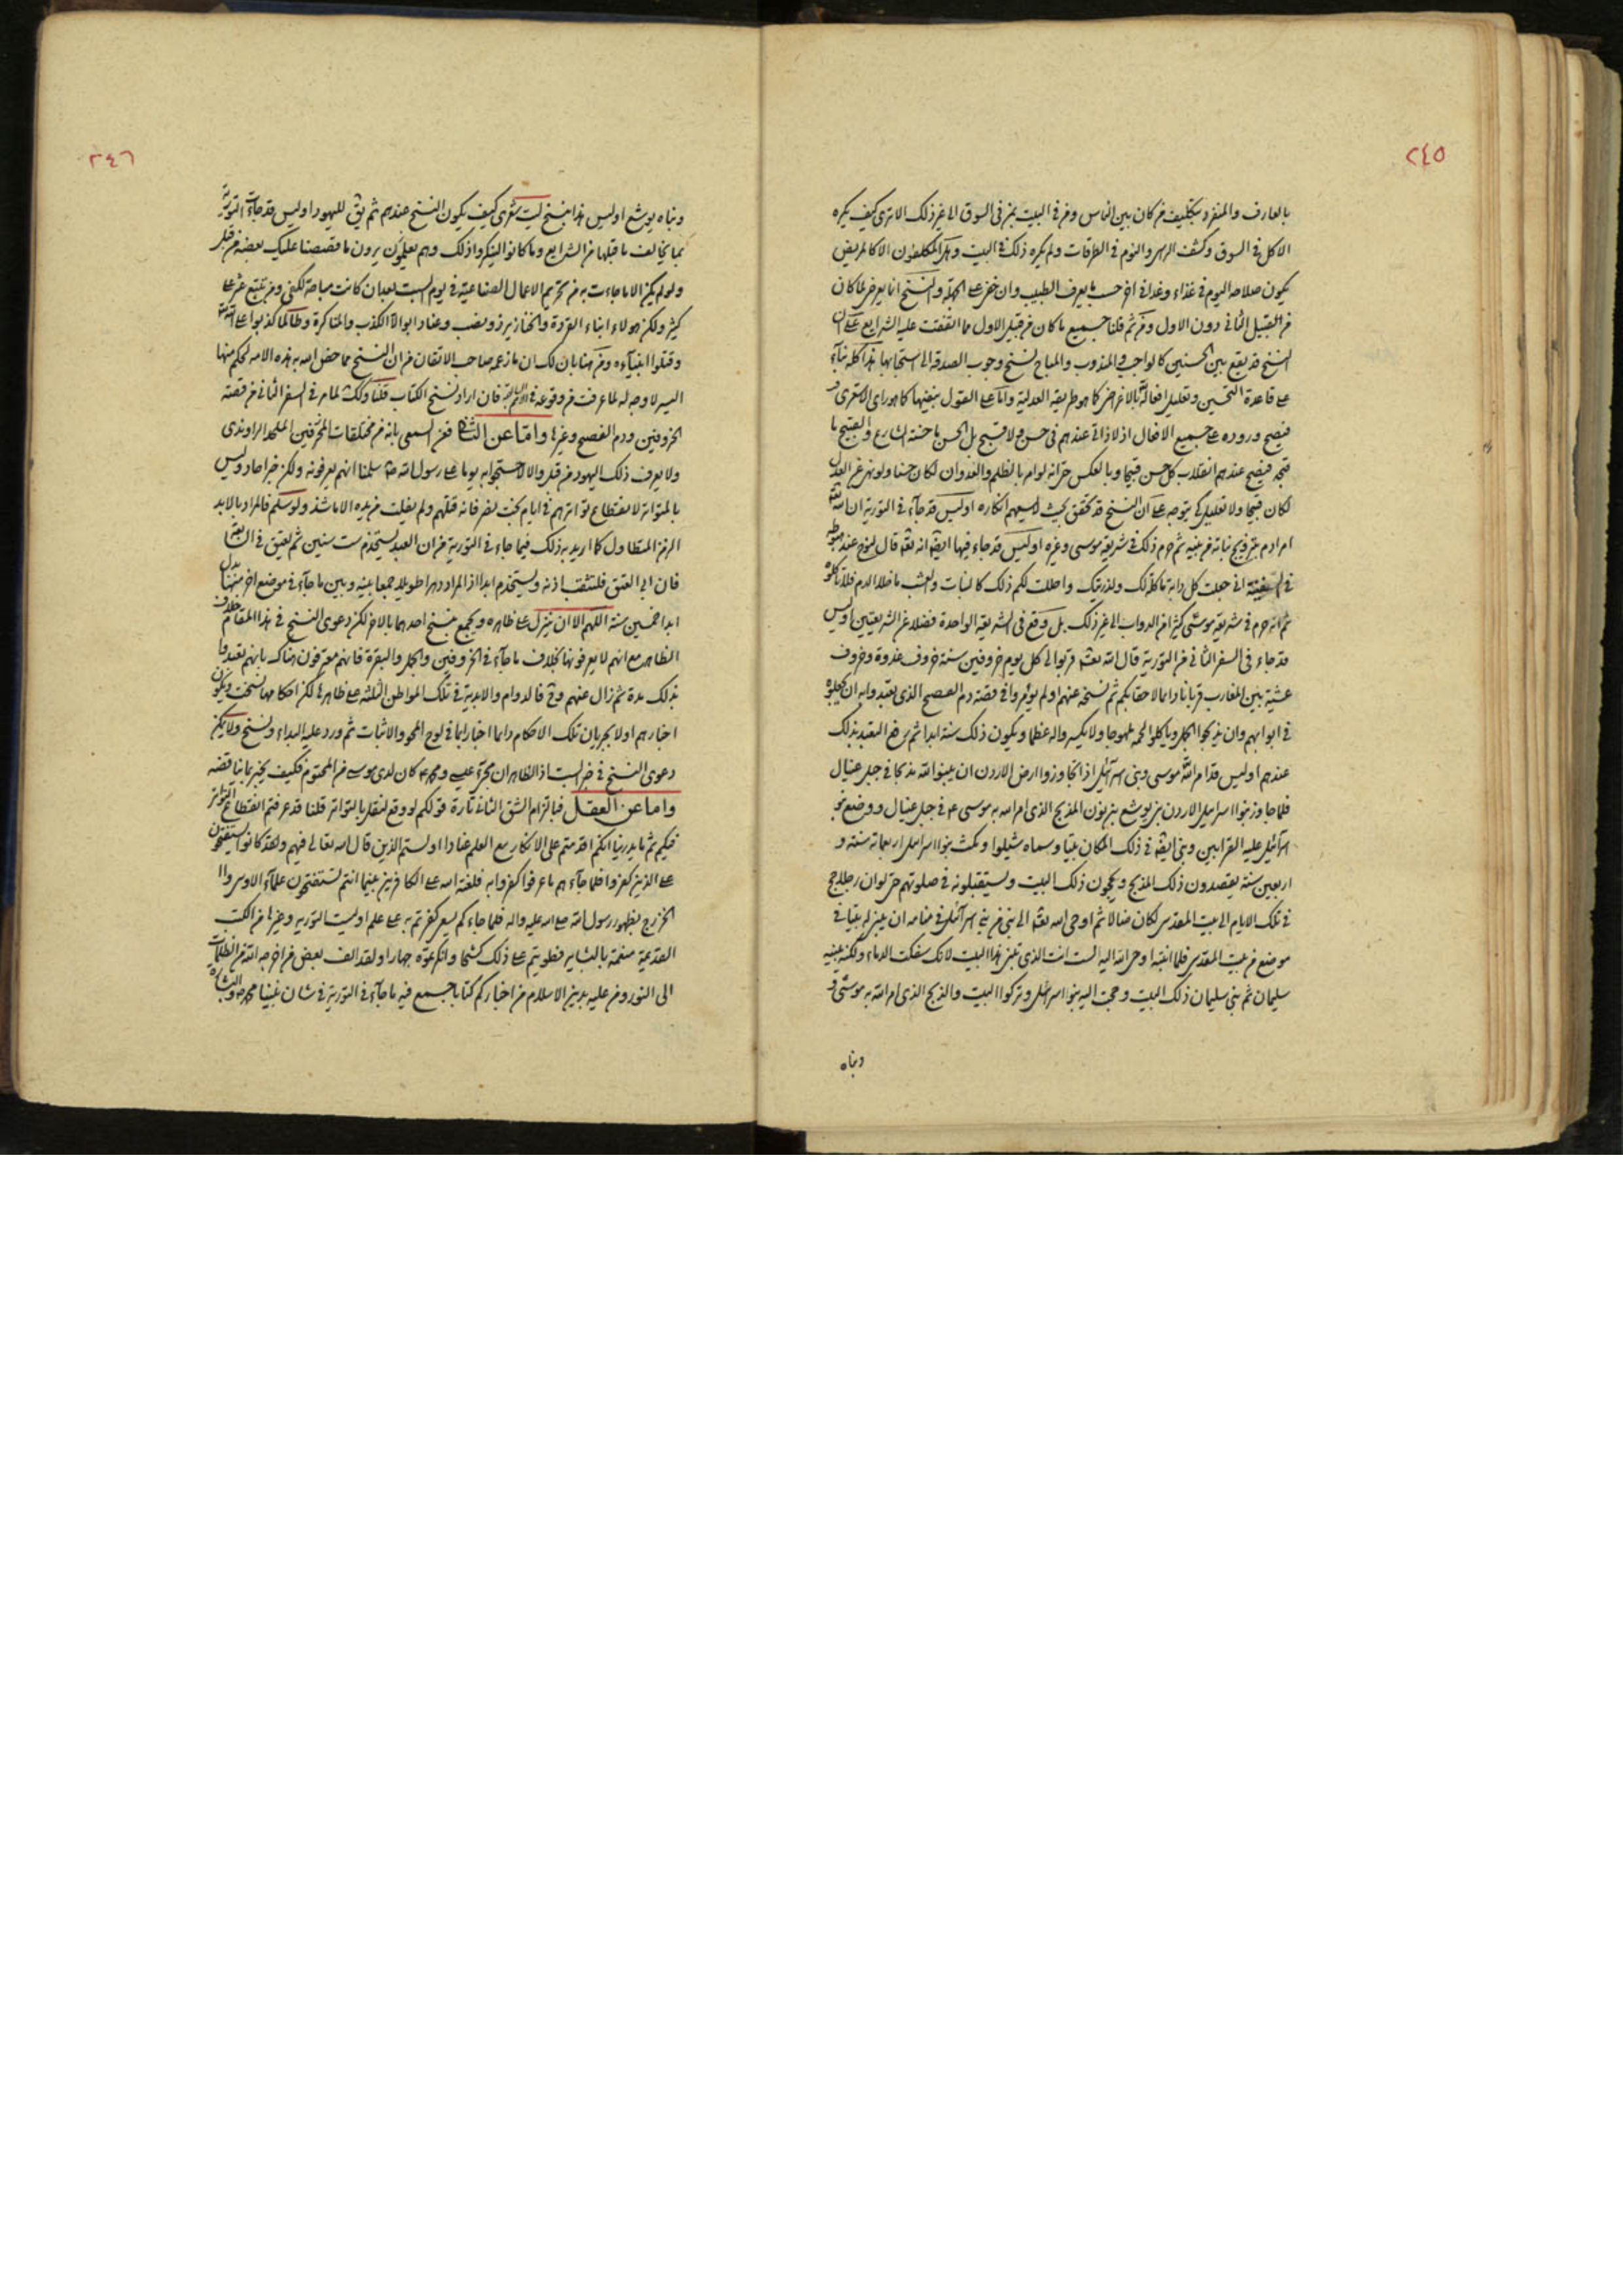 ٢٤٥
بالعارف والمنفرد بتكليف من كان بين الناس ومن فى البيت بمن فى السوق الى غير ذلك الا ترى كيف يكره
الاكل فى السوق وكشف الراس والنوم فى الطرقات ولم يكره ذلك فى البيت وهل المكلفون الا كالمريض
يكون صلاحه اليوم فى غذاء وغدا فى اخر حسب ما يعرف الطبيب وان خفى على الجهلة والنسخ انما يعرض لما كان
من القبيل الثانى دون الاول ومن ثم قلنا جميع ما كان من قبيل الاول مما اتفقت عليه الشرايع على ان
النسخ قد يقع بين الحسنين كالواجب والمندوب والمباح كنسخ وجوب الصدقة الى استحبابها هذا كله بناء
على قاعدة التحسين وتعليل افعاله بالاغراض كما هو طريقة العدلية واما على القول بنفيها كما هو راى الاشعرى
فيصح وروده على جميع الافعال اذ لا ذاتى عندهم فى حسن ولا قبيح بل الحسن ما حسنه الشارع والقبيح ما
قبحه فيصح عندهم انقلاب كل حسن قبيحا وبالعكس حتى انه لو امر بالظلم والعدوان لكان حسنا ولو نهى عن العدل
لكان قبيحا ولا تعليل كى يتوجه على ان النسخ قد تحقق بحيث لا يسعهم انكاره اوليس قد جاء فى التورية ان الله تعالى
امر ادم بتزويج بناته من بنيه ثم حرم ذلك فى شريعة موسى وغيره اوليس قد جاء فيها ايضا انه تعالى قال لنوح عند هبوطه
فى السفينة انى جعلت كل دابة ماكلا لك ولذريتك واحللت لكم ذلك كالنبات والعشب ما خلا الدم فلا تاكلوه
ثم انه حرم فى شريعة موسى كثيرا من الدواب الى غير ذلك بل وقع فى الشريعة الواحدة فضلا عن الشريعتين اوليس
قد جاء فى السفر الثانى من التورية قال الله تعالى قربوا الى كل يوم خروفين سنة خروف غدوة وخروف
عشية بين المغارب قربانا دايما لاحقابكم ثم نسخه عنهم اولم يؤمروا فى قصة دم الفصح الذى تعبدوا به ان يجعلوه
فى ابوابهم وان يذبحوا الحمل وياكلوا لحمه ملهوجا ولا يكسروا له عظما ويكون ذلك سنة ابدا ثم رفع التعبد بذلك
عندهم اوليس قد امر الله موسى وبنى اسرائيل اذا تجاوزوا ارض الاردن ان يبنوا لله مذبحا فى جبل عيبال
فلما جاوز بنوا اسرائيل الاردن بنى يوشع بن نون المذبح الذى امر الله به موسى ع فى جبل عيبال ووضع بنو
اسرائيل عليه القرابين وبنى ايضا فى ذلك المكان بيتا وسماه شيلوا ومكث بنوا اسرائيل اربعمائة سنة و
اربعين سنة يقصدون ذلك المذبح ويحجون ذلك البيت ويستقبلونه فى صلوتهم حتى لو ان رجلا حج
فى تلك الايام الى بيت المقدس لكان ضالا ثم اوحى الله تعالى الى نبى من بنى اسرائيل فى منامه ان يبنى له بيتا فى
موضع من بيت المقدس فلما انتبه اوحى الله اليه لست انت الذى تبنى هذا البيت لانك سفكت الدماء ولكنه يبنيه
سليمان ثم بنى سليمان ذلك البيت وحجت اليه بنوا اسرائيل وتركوا البيت والمذبح الذى امر الله به موسى
وبناه
٢٤٦
وبناه يوشع اوليس هذا بنسخ ليت شعرى كيف يكون النسخ عندهم ثم يق لليهود اوليس قد جاءت التورية
بما يخالف ما قبلها من الشرايع وما كانوا لينكروا ذلك وهم يعلمون يرون ما قصصنا عليك بعضه من قبل
ولو لم يكن الا ما جاءت به من تحريم الاعمال الصناعية فى يوم السبت بعد ان كانت مباحة لكفى ومن تتبع عثر على
كثير ولكن هولاء ابناء القردة والخنازير ذو نصب وعناد ابوا الا الكذب والمناكرة وطالما كذبوا على الله
وقتلوا انبياءه ومن هنا بان لك ان ما زعمه صاحب الاتقان من ان النسخ مما خص الله به هذه الامة لحكم منها
اليسر لا وجه له لما عرفت من وقوعه فى الامم فان اراد نسخ الكتاب قلنا وكذلك لما مر فى السفر الثانى من قصة
الخروفين ودم الفصح وغيرها واما عن الثانى فعن السمعى بانه من مختلقات المحرفين الملحد الراوندى
ولا يعرف ذلك اليهود من قبل والا لاحتجوا به يوما على رسول الله سلمنا انهم يعرفونه ولكن خبر احاد وليس
بالمتواتر لانقطاع تواترهم فى ايام بخت نصر فانه قتلهم ولم يفلت من يده الا ما شذ ولو سلم فالمراد بالابد
الزمن المتطاول كما اريد به ذلك فيما جاء فى التورية من ان العبد يستخدم ست سنين ثم يعتق فى السابعة
فان ابى العتق فلتثقب اذنه ويستخدم ابدا اذ المراد دهرا طويلا جمعا بينه وبين ما جاء فى موضع اخر منها
ابدا خمسين سنة اللهم الا ان ينزل على ظاهره ويجمع بنسخ احدهما بالاخر لكن دعوى النسخ فى هذا المقام خلاف
الظاهر مع انهم لا يعرفونها بخلاف ما جاء فى الخروفين والحمل والبقرة فانهم معترفون هناك بانهم تعبدوا
بذلك مدة ثم زال عنهم وفى فالدوام والابدية فى تلك المواطن الثلثة على ظاهرها لكن احكامها نسخت ويكون
اخبارهم اولا بجريان تلك الاحكام دايما اخبارا بما فى لوح المحو والاثبات ثم ورد عليه البداء ونسخ ولا يمكن
دعوى النسخ فى خبر السبت اذ الظاهر ان مجئ عيسى ومحمد ص كان لدى موسى من المحتوم فكيف يخبر بما يناقضه
واما عن العقل فبالتزام الشق الثانى تارة قولكم لو وقع لنقل بالتواتر قلنا قد عرفتم انقطاع التواتر
فيكم ثم ما يدرينا انكم اقدمتم على الانكار مع العلم عنادا اولستم الذين قال الله تعالى فيهم ولقد كانوا يستفتحون
على الذين كفروا فلما جاءهم ما عرفوا كفروا به فلعنة الله على الكافرين بينما انتم تستفتحون علماء الاوس وا
الخزرج بظهور رسول الله صلى الله عليه واله فلما جاءكم يسعى كفرتم به على علم اوليست التورية وغيرها من الكتب
القديمة مفعمة بالبشاير فطويتم على ذلك كشحا وانكرتموه جهارا ولقد الف بعض من اخرجه الله من الظلمات
الى النور ومن عليه بدين الاسلام من احباركم كتابا جمع فيه ما جاء فى التورية فى شان نبينا محمد ص والبشارة